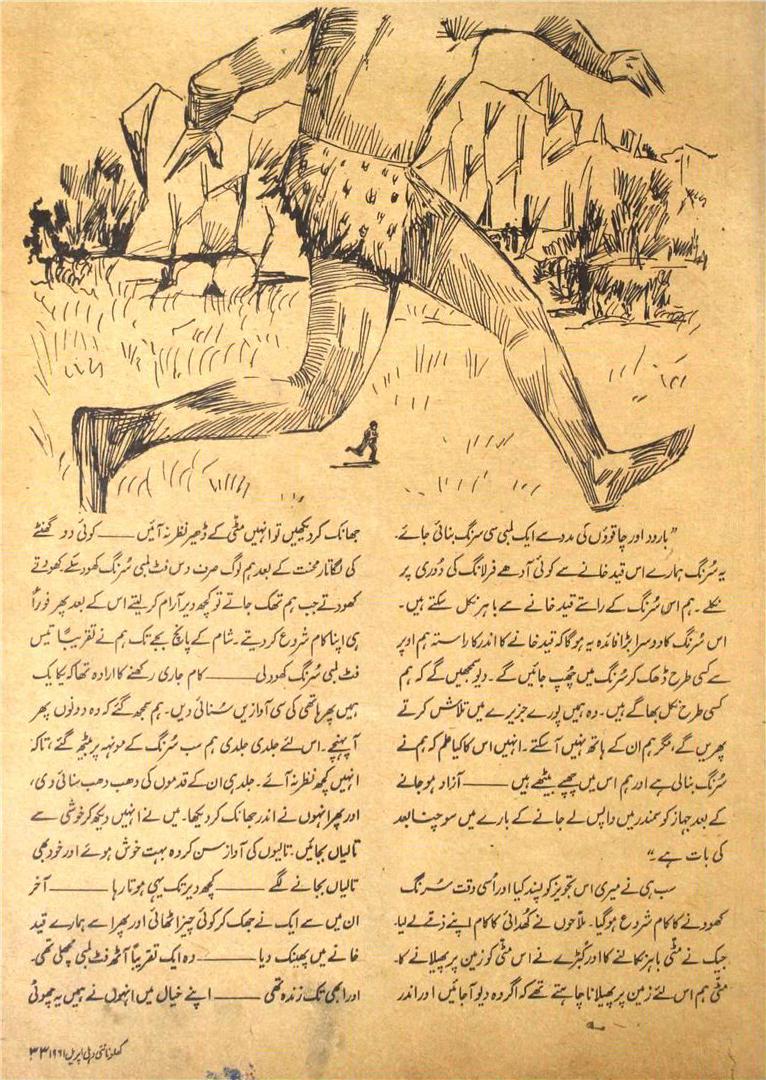 "بارود اور چاقوؤں کی مدد سے ایک لمبی سی سرنگ بنائی جائے۔
یہ سُرنگ ہمارے اس قید خانے سے کوئی آدھے فرلانگ کی دُوری پر
نکلے۔ ہم اس سُرنگ کے راستے قید خانے سے باہر نکل سکتے ہیں۔
اس سُرنگ کا دوسرا بڑا فائدہ یہ ہوگا کہ قید خانے کا اندر کا راستہ ہم اوپر
سے کسی طرح ڈھک کر سُرنگ میں چھپ جائیں گے۔ دیو سمجھیں گے کہ ہم
کسی طرح نکل بھاگے ہیں۔ وہ ہمیں پورے جزیرے میں تلاش کرتے
پھریں گے، مگر ہم ان کے ہاتھ نہیں آسکتے۔ انہیں اس کا کیا علم کہ ہم نے
سُرنگ بنالی ہے اور ہم اس میں چھپے بیٹھے ہیں —— آزاد ہوجانے
کے بعد جہاز کو سمندر میں واپس لے جانے کے بارے میں سوچنا بعد
کی بات ہے۔"
سب ہی نے میری اس تجویز کو پسند کیا اور اُسی وقت سُرنگ
کھودنے کا کام شروع ہوگیا۔ ملاحوں نے کھُدائی کا کام اپنے ذمّے لے لیا۔
جیک نے مٹّی باہر نکالنے کا اور کُبڑے نے اس مٹّی کو زمین پر پھیلانے کا۔
مٹّی ہم اس لئے زمین پر پھیلانا چاہتے تھے کہ اگر وہ دیو آجائیں اور اندر
جھانک کر دیکھیں تو انہیں مٹّی کے ڈھیر نظر نہ آئیں —— کوئی دو گھنٹے
کی لگاتار محنت کے بعد ہم لوگ صرف دس فٹ لمبی سُرنگ کھود سکے۔ کھودتے
کھودتے جب ہم تھک جاتے تو کچھ دیر آرام کرلیتے اس کے بعد پھر فوراً
ہی اپنا کام شروع کردیتے۔ شام کے پانچ بجے تک ہم نے تقریباً تیس
فٹ لمبی سُرنگ کھود لی —— کام جاری رکھنے کا ارادہ تھا کہ یکایک
ہمیں پھر ہاتھی کی سی آوازیں سُنائی دیں۔ ہم سمجھ گئے کہ وہ دونوں پھر
آپہنچے۔ اس لئے جلدی جلدی ہم سب سُرنگ کے مونہہ پر بیٹھ گئے، تاکہ
انہیں کچھ نظر نہ آئے۔ جلد ہی ان کے قدموں کی دھب دھب سنائی دی،
اور پھر انہوں نے اندر جھانک کر دیکھا۔ میں نے انہیں دیکھ کر خوشی سے
تالیاں بجائیں۔ تالیوں کی آواز سن کر وہ بہت خوش ہوئے اور خود بھی
تالیاں بجانے لگے —— کچھ دیر تک یہی ہوتا رہا —— آخر
ان میں سے ایک نے جھک کر کوئی چیز اٹھائی اور پھر اسے ہمارے قید
خانے میں پھینک دیا —— وہ ایک تقریباً آٹھ فٹ لمبی مچھلی تھی۔
اور ابھی تک زندہ تھی —— اپنے خیال میں انہوں نے ہمیں یہ چھوٹی
کھلونا نئی دہلی اپریل ۱۹۶۱ ۳۳